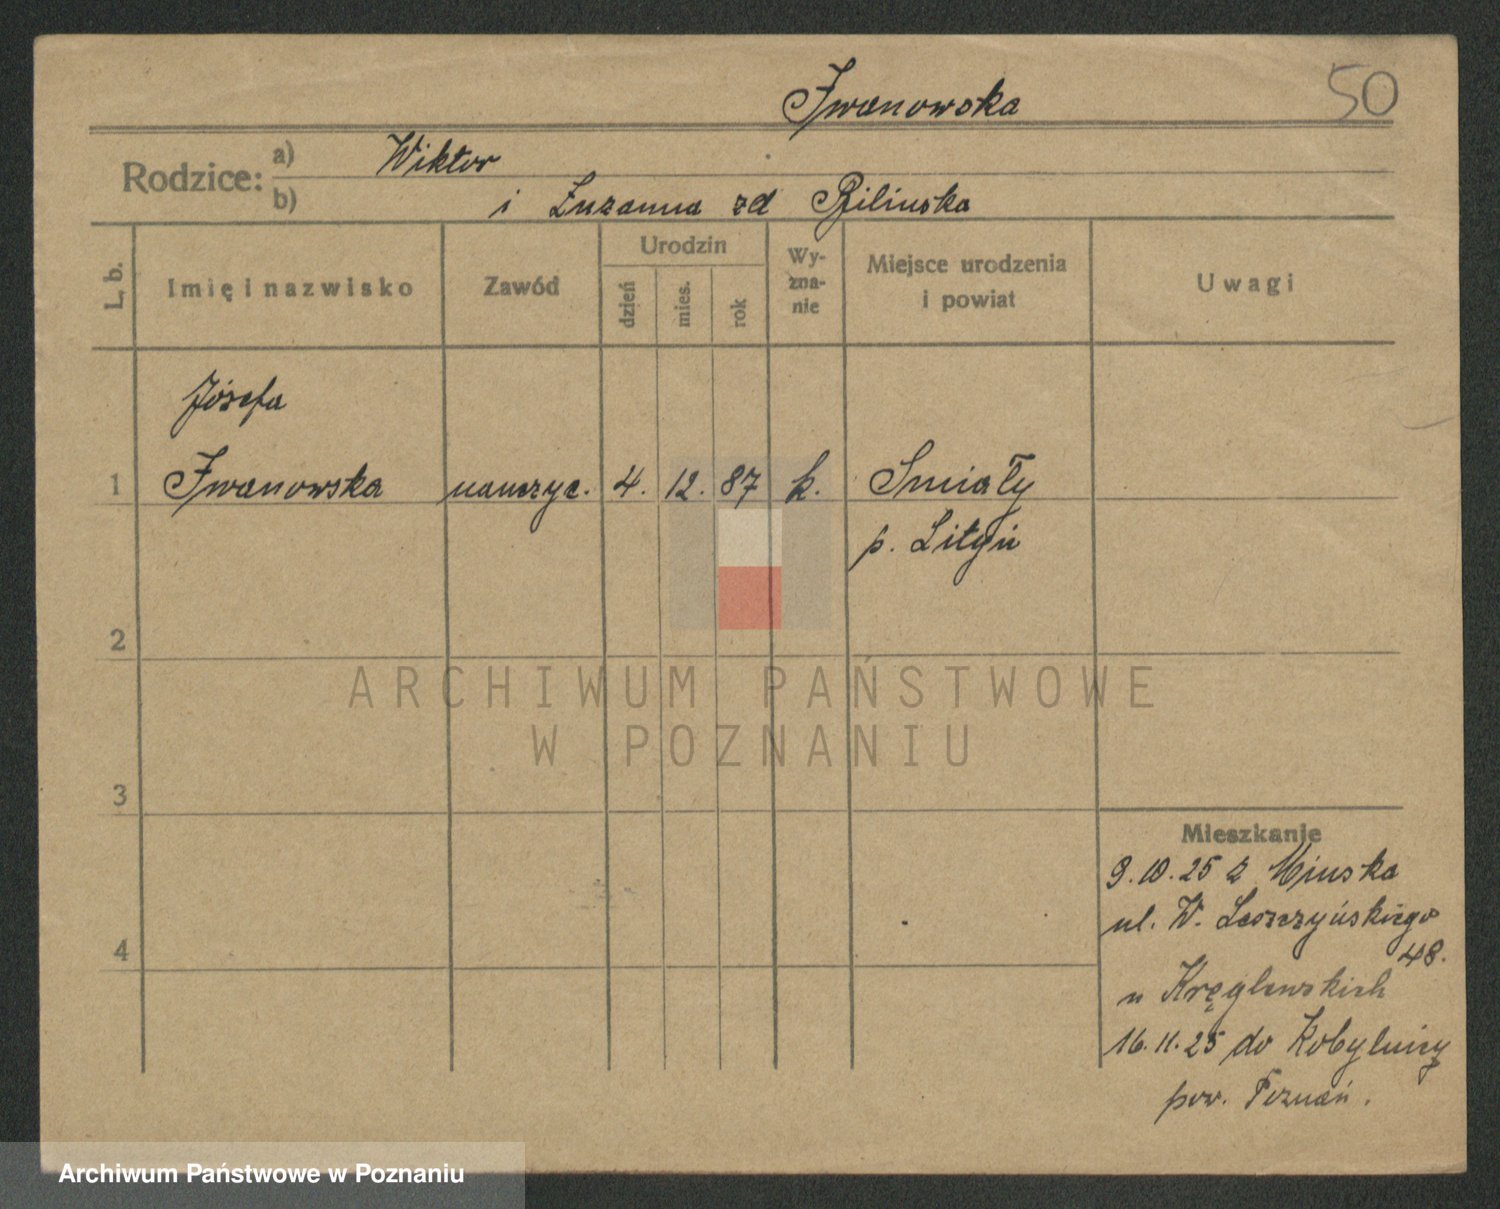 Iwanowska
50
Rodzice:
a) Wiktor
b) i Zuzanna zd Bilinska
L. b.
Imię i nazwisko
Zawód
Urodzin
dzień
mies.
rok
Wy-
zna-
nie
Miejsce urodzenia
i powiat
Uwagi
Józefa
1 Iwanowska nauczyc. 4. 12. 87 k. Smiały
p. Lityń
2
ARCHIWUM PAŃSTWOWE
W POZNANIU
3
Mieszkanie
9.10.25 z Minska
ul. W. Leszczyńskiego
48.
4
u Kręglewskich
16.11.25 do Kobylnicy
pow. Poznań.
Archiwum Państwowe w Poznaniu